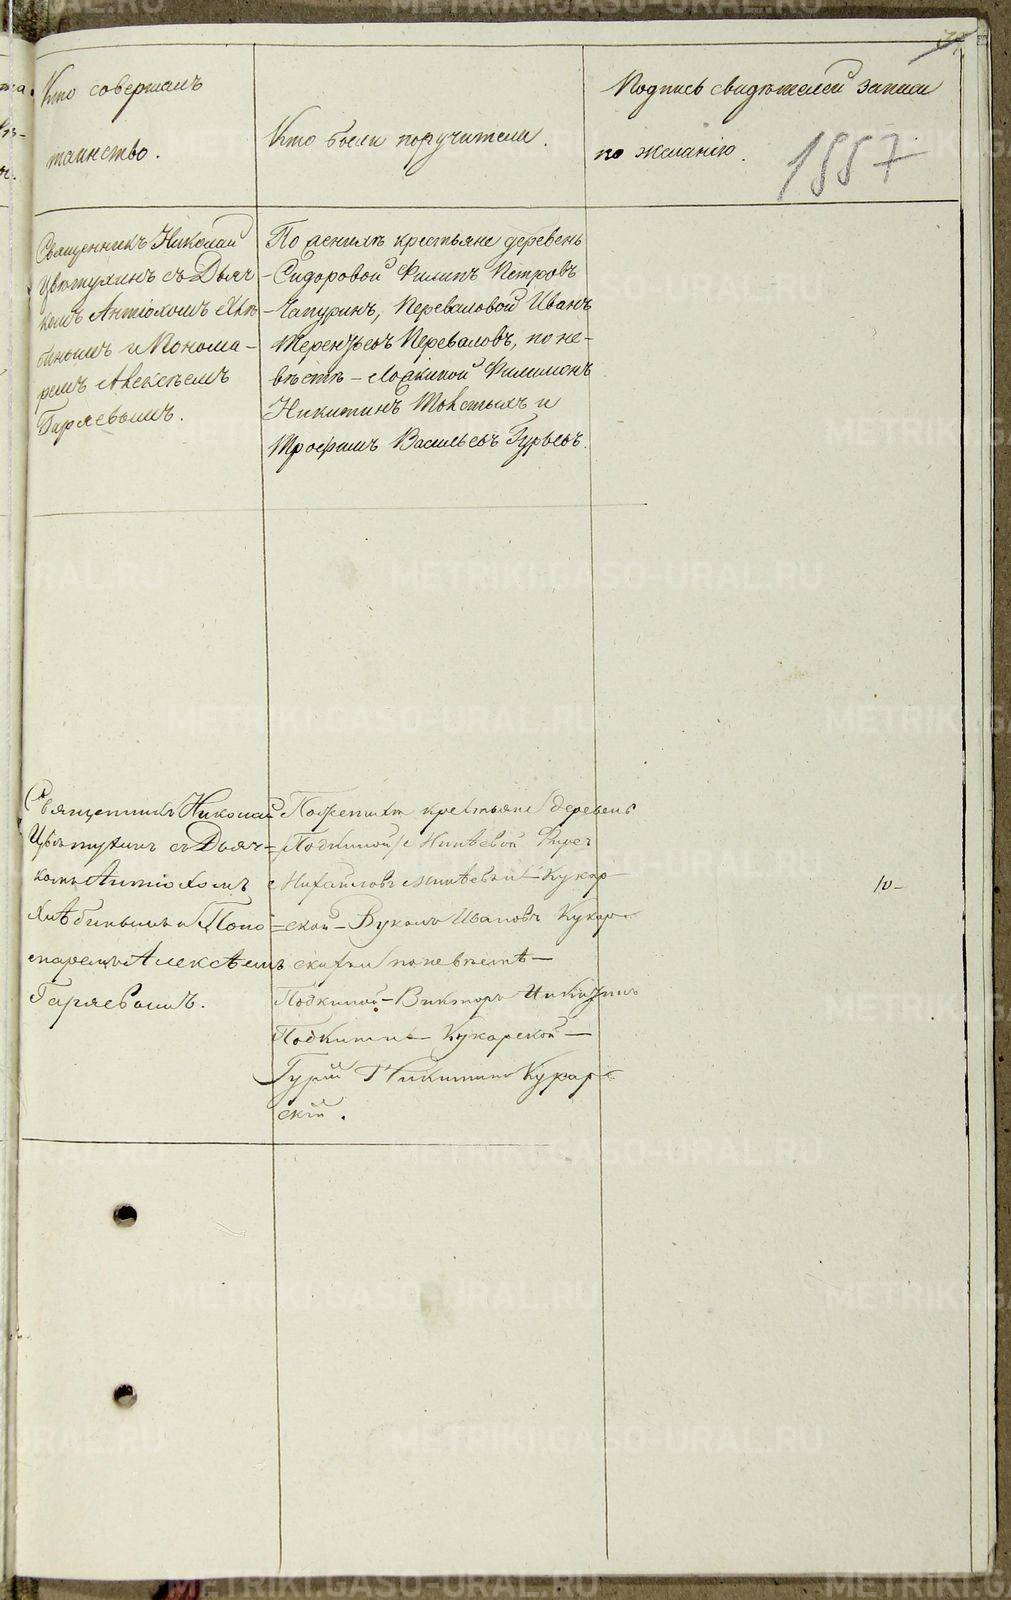 Кто совершалъ
таинство.
Кто были поручители.
Подпись свидѣтелей записи
по желанію.
1887
Священникъ Николай
Цвѣтухинъ съ Дьяч-
комъ Антіохомъ Хлѣ-
бинымъ и Понома-
ремъ Алексѣемъ
Гаряевымъ.
По женихѣ крестьяне деревень
Сидоровой Филипъ Петровъ
Чапуринъ, Переваловой Иванъ
Терентьевъ Переваловъ, по не-
вѣстѣ – Филимонъ
Никитинъ Толстыхъ и
Трофимъ Васильевъ Гурьевъ.
Священникъ Николай
Цвѣтухинъ съ Дьяч-
комъ Антіохомъ
Хлѣбинымъ и Поно-
маремъ Алексѣемъ
Гаряевымъ.
По женихѣ крестьяне деревень
Михайловъ Кукар-
ской – Вуколъ Ивановъ Кукар-
скихъ и по невѣстѣ –
Подкиной – Викторъ
Подкинъ – Кукарской –
Гурій Никитинъ Кукар-
скій.
METRIKI.GASO-URAL.RU